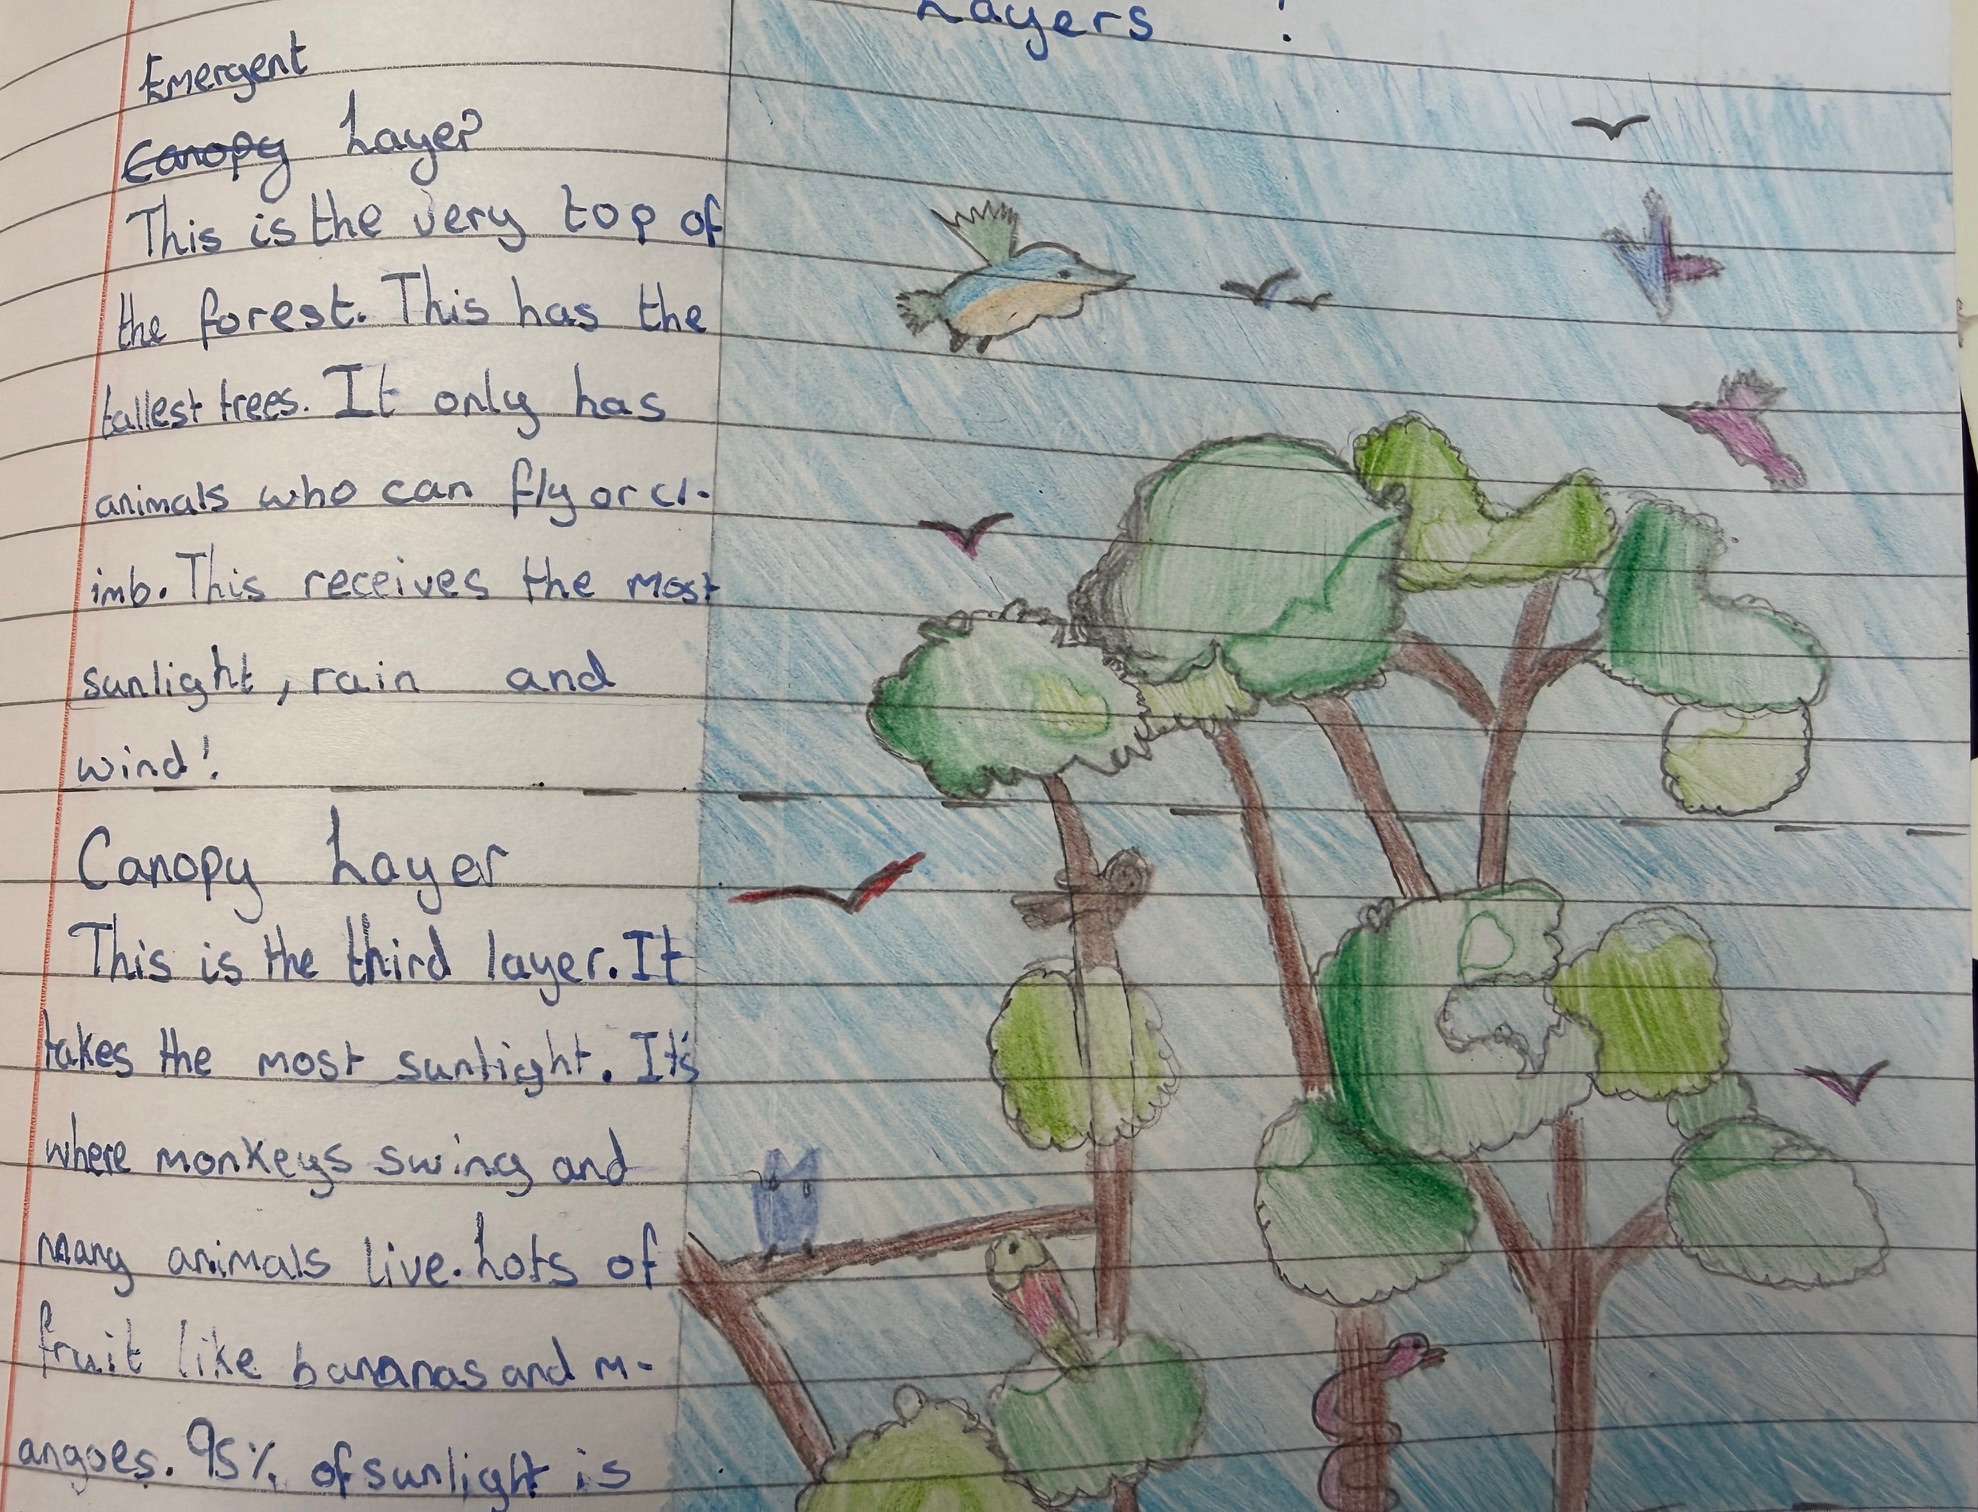 Layers !
Emergent
Canopy Layer
This is the very top of
the forest. This has the
tallest trees. It only has
animals who can fly or cl-
imb. This receives the most
sunlight, rain and
wind!
Canopy Layer
This is the third layer. It
takes the most sunlight. It's
where monkeys swing and
many animals live. Lots of
fruit like bananas and m-
angoes. 95% of sunlight is